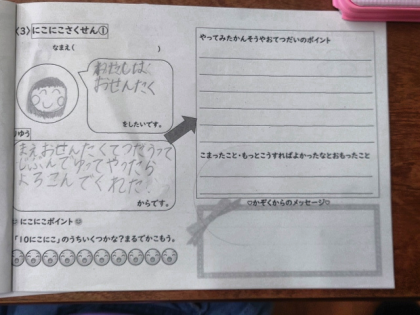 (3)にこにこさくせん①
なまえ( )
わたしは、
おせんたく
をしたいです。
りゆう
まえおせんたくてつだうって
じぶんでゆってやったら
よろこんでくれた!
からです。
にこにこポイント
「10にこにこ」のうちいくつかな?まるでかこもう。
やってみたかんそうやおてつだいのポイント
こまったこと・もっとこうすればよかったなとおもったこと
♡かぞくからのメッセージ♡